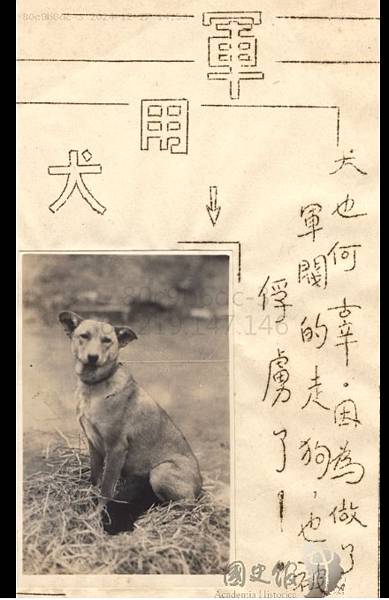 軍用犬
犬也何辜。因為做了
軍閥的走狗，也被
俘虜了！
國史館
Academia Historica